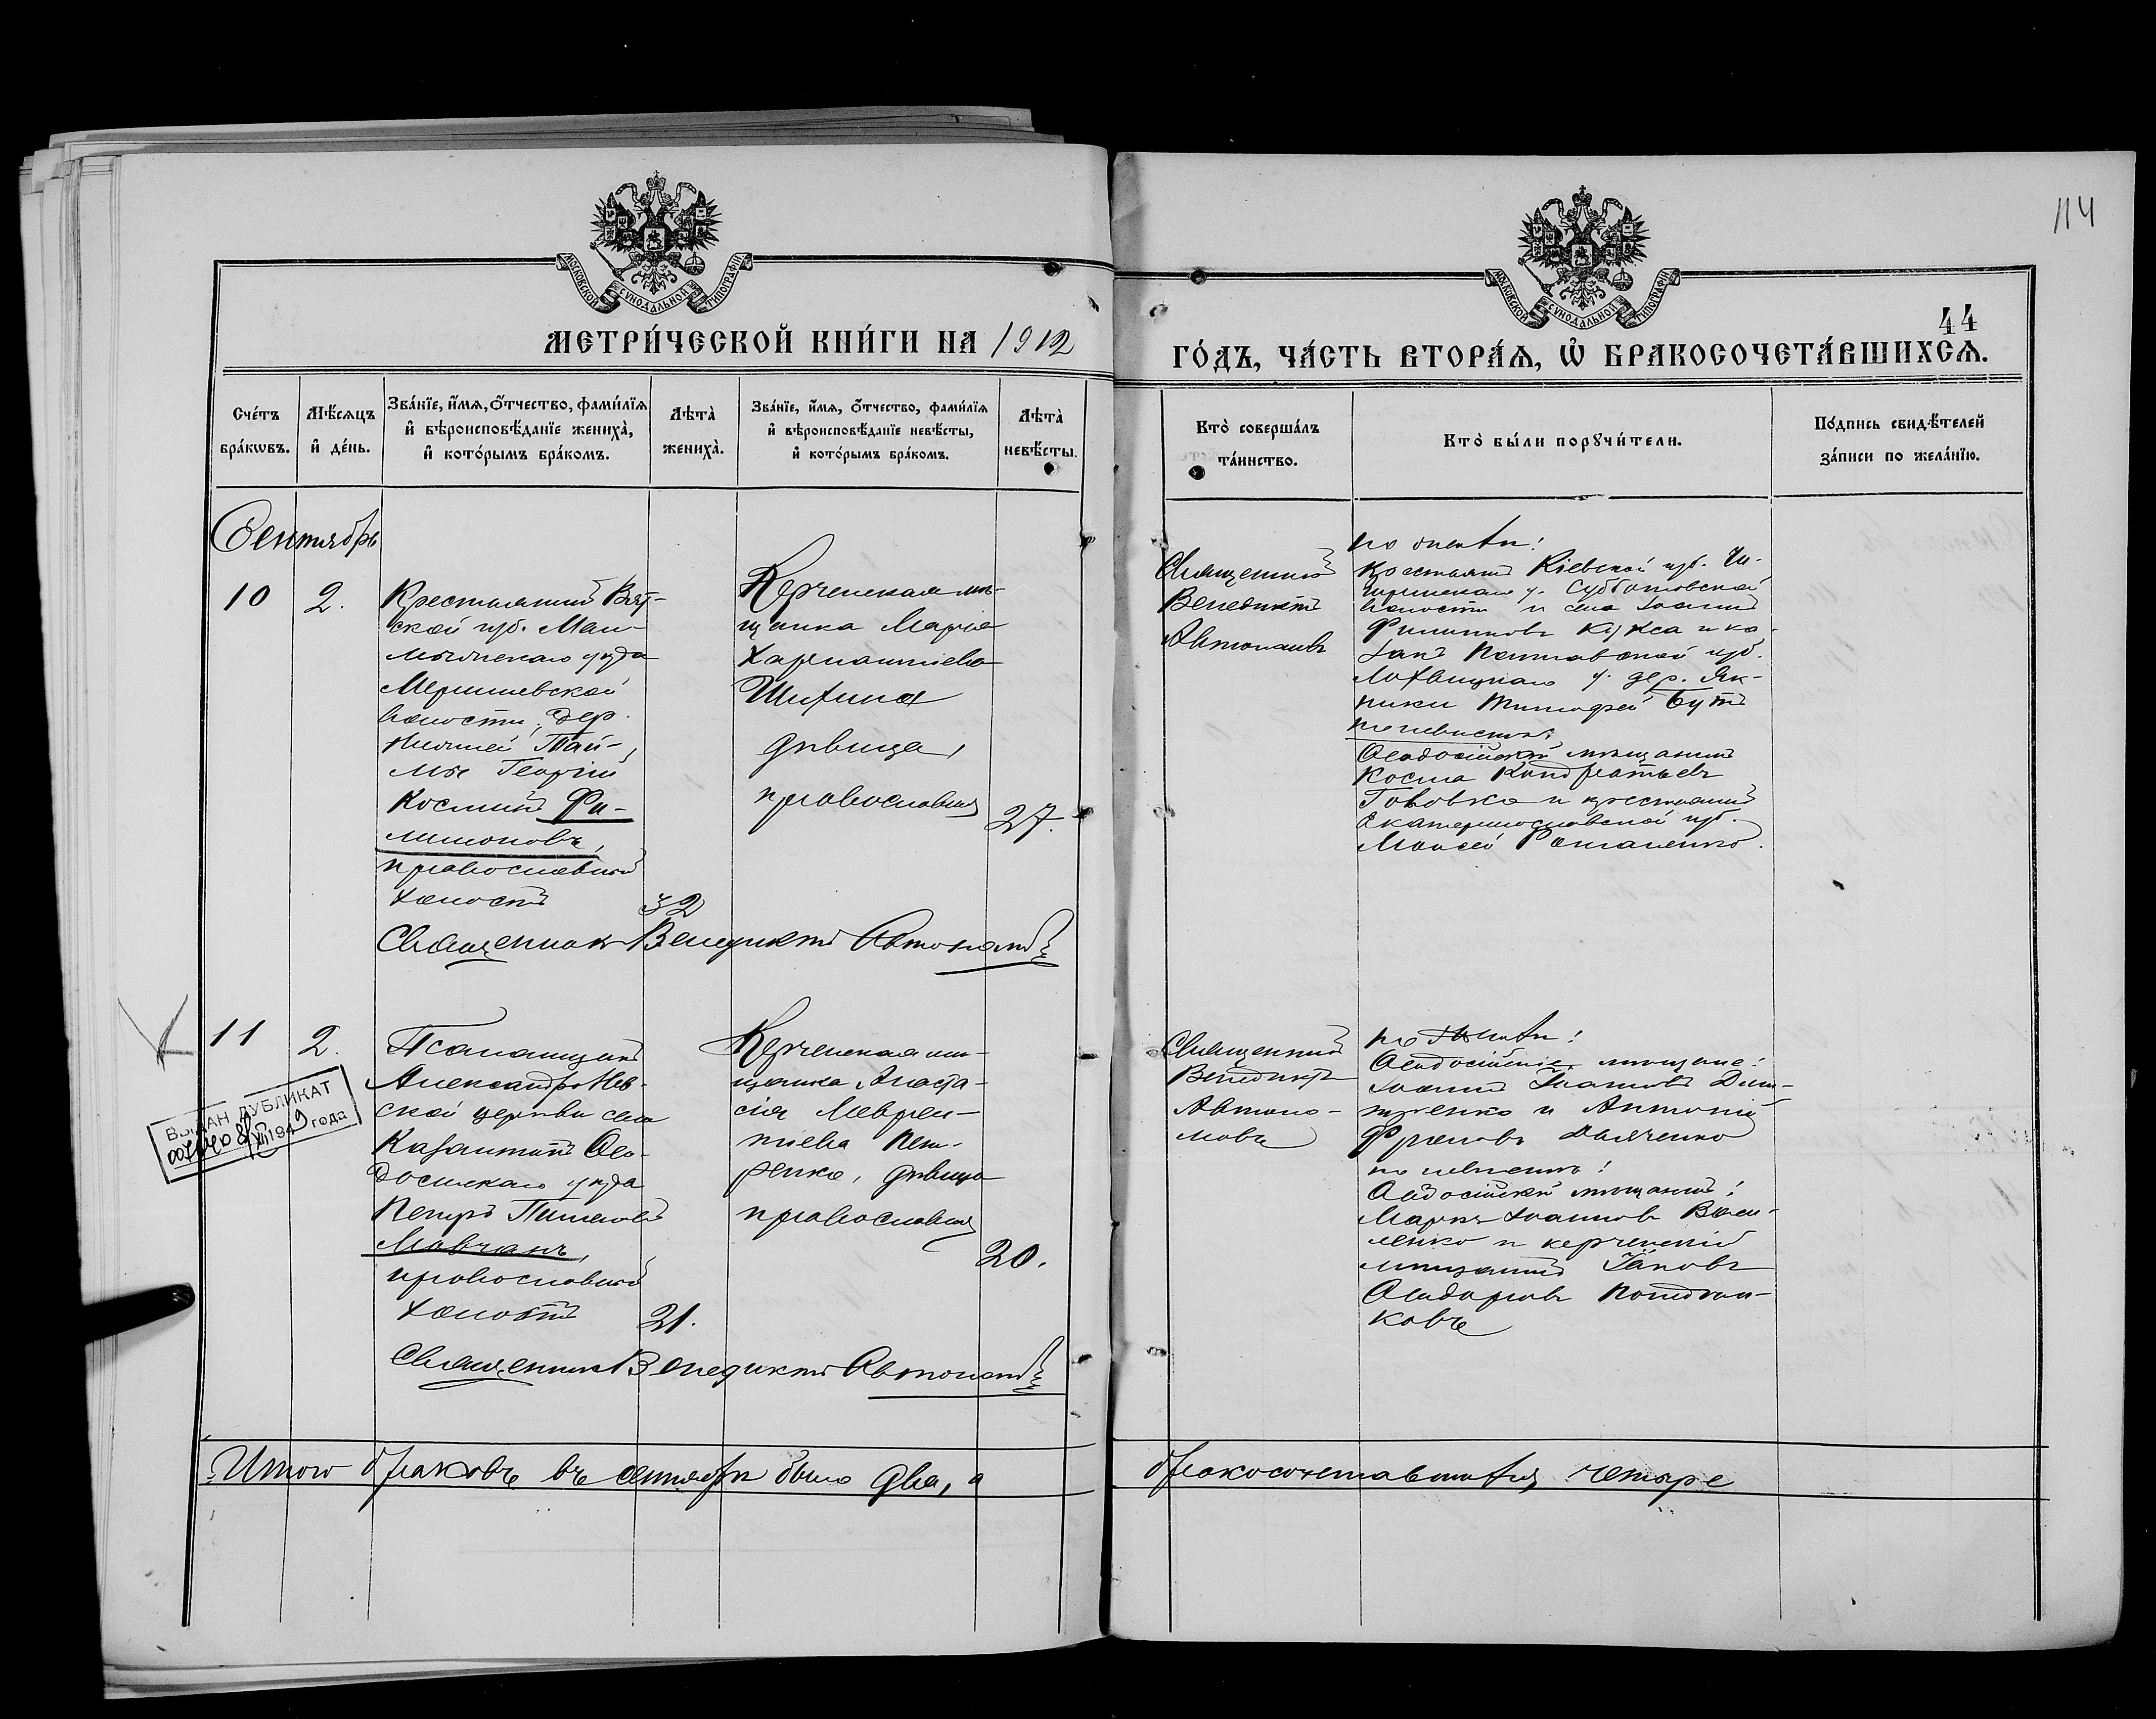 114
МОСКОВСКОЙ СУНОДАЛЬНОЙ ТИПОГРАФІИ
МЕТРИ́ЧЕСКОЙ КНИ́ГИ НА 1912
МОСКОВСКОЙ СУНОДАЛЬНОЙ ТИПОГРАФІИ
44
ГО́ДЪ, ЧА́СТЬ ВТОРА́Я, Ѡ БРАКОСОЧЕТА́ВШИХСЯ.
Сче́тъ
бра́кѡвъ.
Мѣ́сяцъ
и҆ де́нь.
Зва́нїе, и҆́мя, ѻ҆́тчество, фами́лїя
и҆ вѣроисповѣ́данїе жениха̀,
и҆ кото́рымъ бра́комъ.
Лѣта̀
жениха̀.
Зва́нїе, и҆́мя, ѻ҆́тчество, фами́лїя
и҆ вѣроисповѣ́данїе невѣ́сты,
и҆ кото́рымъ бра́комъ.
Лѣта̀
невѣ́сты.
Кто̀ соверша́лъ
та́инство.
Кто̀ бы́ли порꙋчи́тели.
По́дпись свидѣ́телей
за́писи по жела́нїю.
Сентябрь
10
2.
Крестьянинъ Вят-
ской губ. Мал-
мыжскаго уѣзда
волости, дер.
Георгій
Косминъ Фи-
лимоновъ,
православный
холостъ
32
Керченская мѣ-
щанка Марія
Харлампіева
Шихина
дѣвица,
православная
27.
Священникъ
Венедиктъ
Автономовъ
по женихѣ:
крестьяне Кіевской губ. Чи-
гиринскаго у. Субботовской
волости и села Іоаннъ
Филипповъ Кукса и ка-
закъ Полтавской губ.
Лохвицкаго у. дер. Як-
ники Тимофей Бутъ
по невѣстѣ:
Ѳеодосійскій мѣщанинъ
Косма Кондратьевъ
Гововка и крестьянинъ
Екатеринославской губ.
Моисей Романенко.
Священникъ Венедиктъ Автономовъ
11
2.
ВЫДАН ДУБЛИКАТ
8/XII 1949 года
Псаломщикъ
Александро-Нев-
ской церкви села
Казантипъ Ѳео-
досійскаго уѣзда
Петръ Пименовъ
Мовчанъ,
православный
холостъ
21.
Керченская мѣ-
щанка Анаста-
сія Лаврен-
тіева Пет-
ренко, дѣвица
православная
20.
Священникъ
Венедиктъ
Автоно-
мовъ
по женихѣ:
Ѳеодосійскіе мѣщане:
Іоаннъ Іоанновъ Дми-
тренко и Антоній
Дьяченко
по невѣстѣ:
Ѳеодосійскій мѣщанинъ:
Маркъ Іоанновъ Васи-
ленко и керченскій
мѣщанинъ Іаковъ
Ѳеодоровъ
ковъ
Священникъ Венедиктъ Автономовъ
Итого браковъ въ сентябрѣ было два, а
бракосочетавшихся четыре